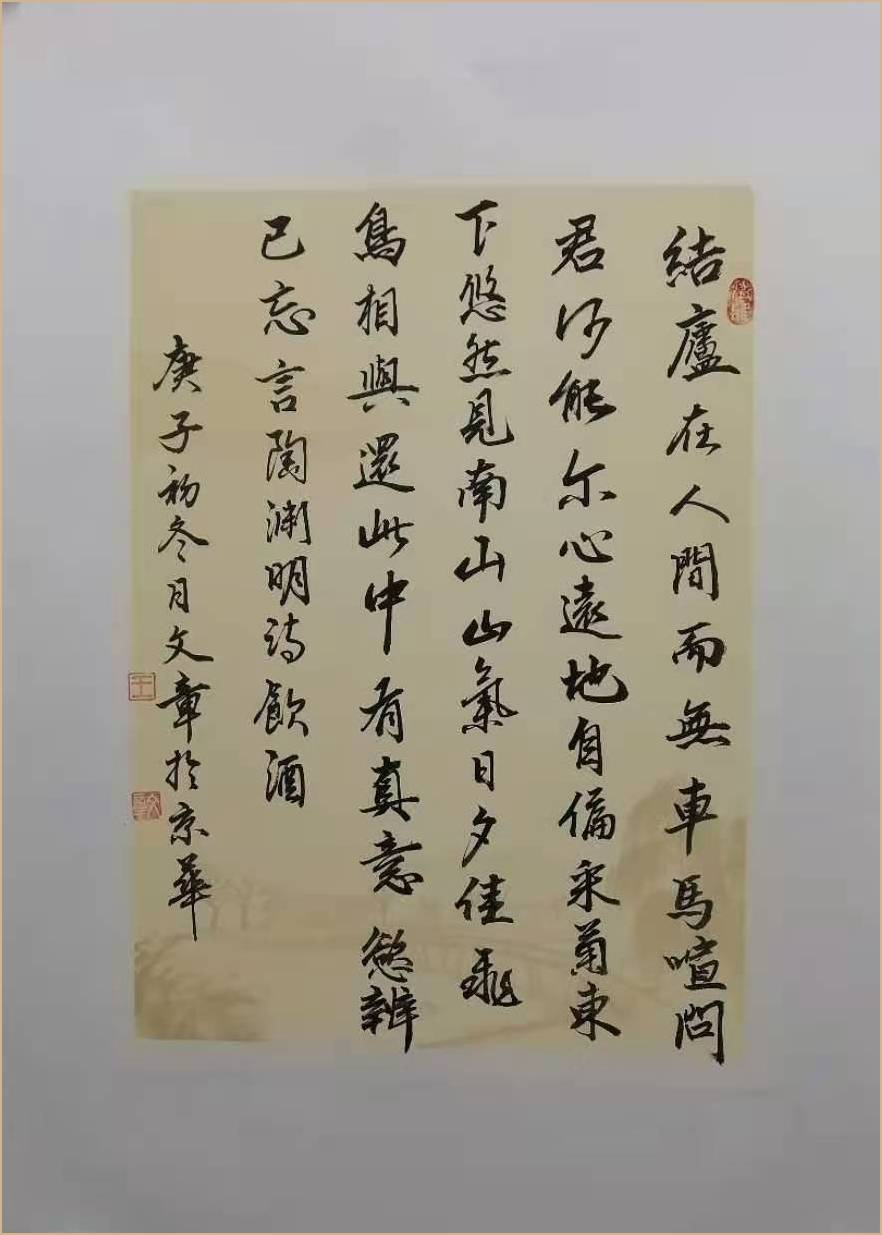 結廬在人間而無車馬喧問
君何能尔心遠地自偏采菊東
下悠然見南山山氣日夕佳飛
鳥相與還此中有真意慾辨
已忘言陶渊明诗飲酒
庚子初冬月文章於京華
王